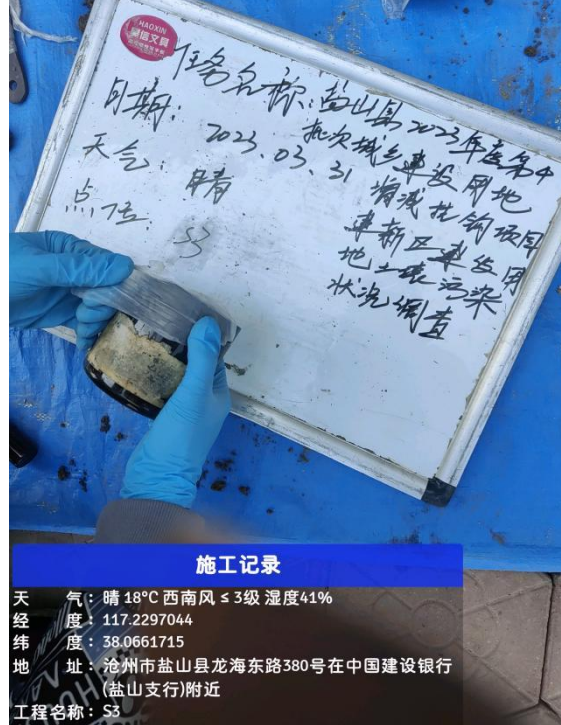 HAOXIN
昊信文具
任务名称：盐山县2023年度第4
批次城乡建设用地
增减挂钩项目
建新区建设用
地土壤污染
状况调查
日期：2023.03.31
天气：晴
点位：S3
施工记录
天气：晴 18℃ 西南风 ≤ 3级 湿度41%
经度：117.2297044
纬度：38.0661715
地址：沧州市盐山县龙海东路380号在中国建设银行
(盐山支行)附近
工程名称：S3